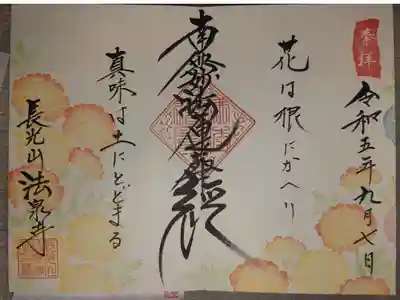 奉拝
令和五年九月七日
花は根にかへり
南無妙法蓮華経
真味は土にとどまる
長光山 法泉寺